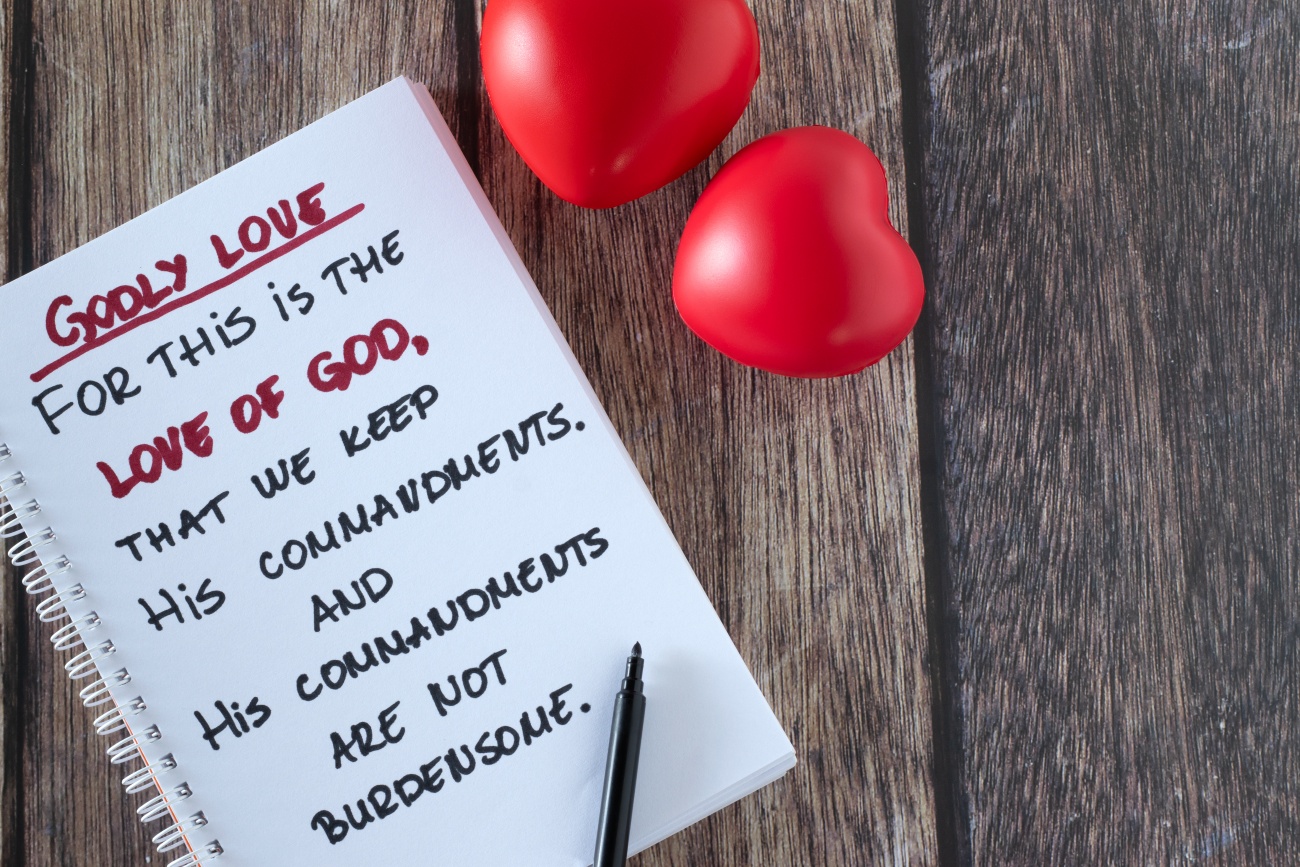 GODLY LOVE
FOR THIS IS THE
LOVE OF GOD,
THAT WE KEEP
HIS COMMANDMENTS.
AND
HIS COMMANDMENTS
ARE NOT
BURDENSOME.